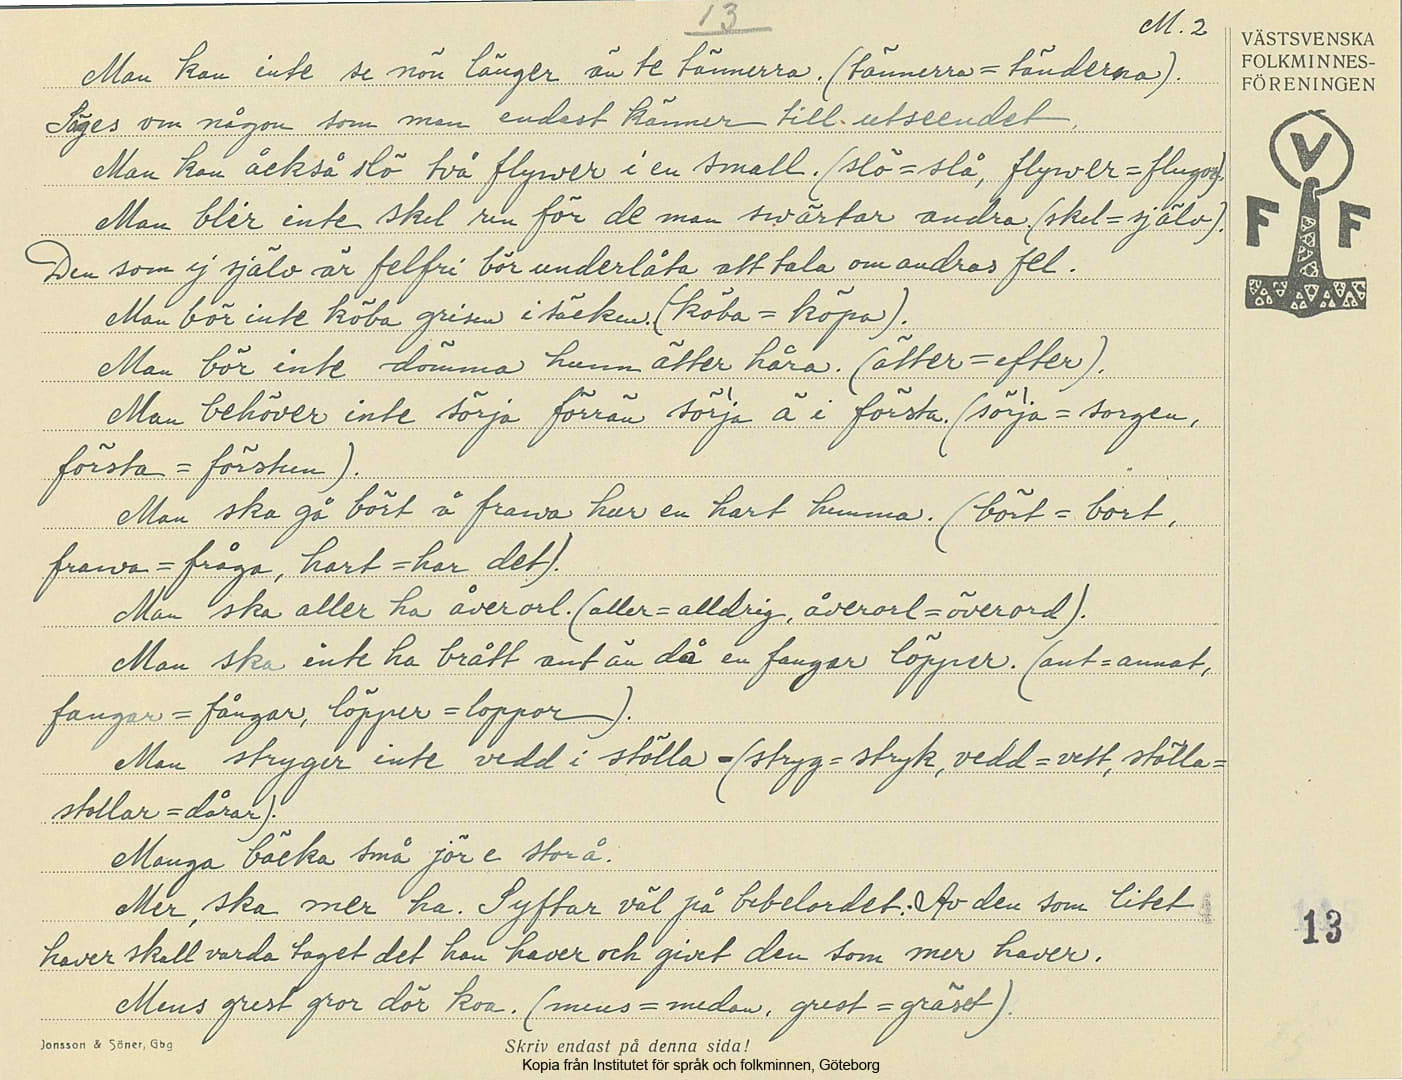 13
M. 2
VÄSTSVENSKA
FOLKMINNES-
FÖRENINGEN
V
F F
Man kan inte se nön länger än te tännerra. (tännerra = tänderna).
Säges om någon som man endast känner till utseendet.
Man kan åckså slö två flywer i en small. (slö = slå, flywer = flugor).
Man blir inte skel ren för de man swärtar andra. (skel = själv).
Den som ej själv är felfri bör underlåta att tala om andras fel.
Man bör inte köba grisen i säcken. (köba = köpa).
Man bör inte dömma hunn ätter håra. (ätter = efter).
Man behöver inte sörja förrän sörja ä i första. (sörja = sorgen,
första = försten).
Man ska gå bört å frawa hur en hart humma. (bört = bort,
frawa = fråga, hart = har det).
Man ska aller ha åverorl. (aller = alldrig, åverorl = överord).
Man ska inte ha brått ant än då en fangar löpper. (ant = annat,
fangar = fångar, löpper = loppor).
Man stryger inte vedd i stölla - (stryg = stryk, vedd = vett, stölla =
stollar = dårar).
Manga bäcka små jör e stor å.
Mer, ska mer ha. Syftar väl på bebelordet: Av den som litet
haver skall varda taget det han haver och givet den som mer haver.
Mens grest gror dör koa. (mens = medan, grest = gräset).
13
Jonsson & Söner, Gbg
Skriv endast på denna sida!
Kopia från Institutet för språk och folkminnen, Göteborg